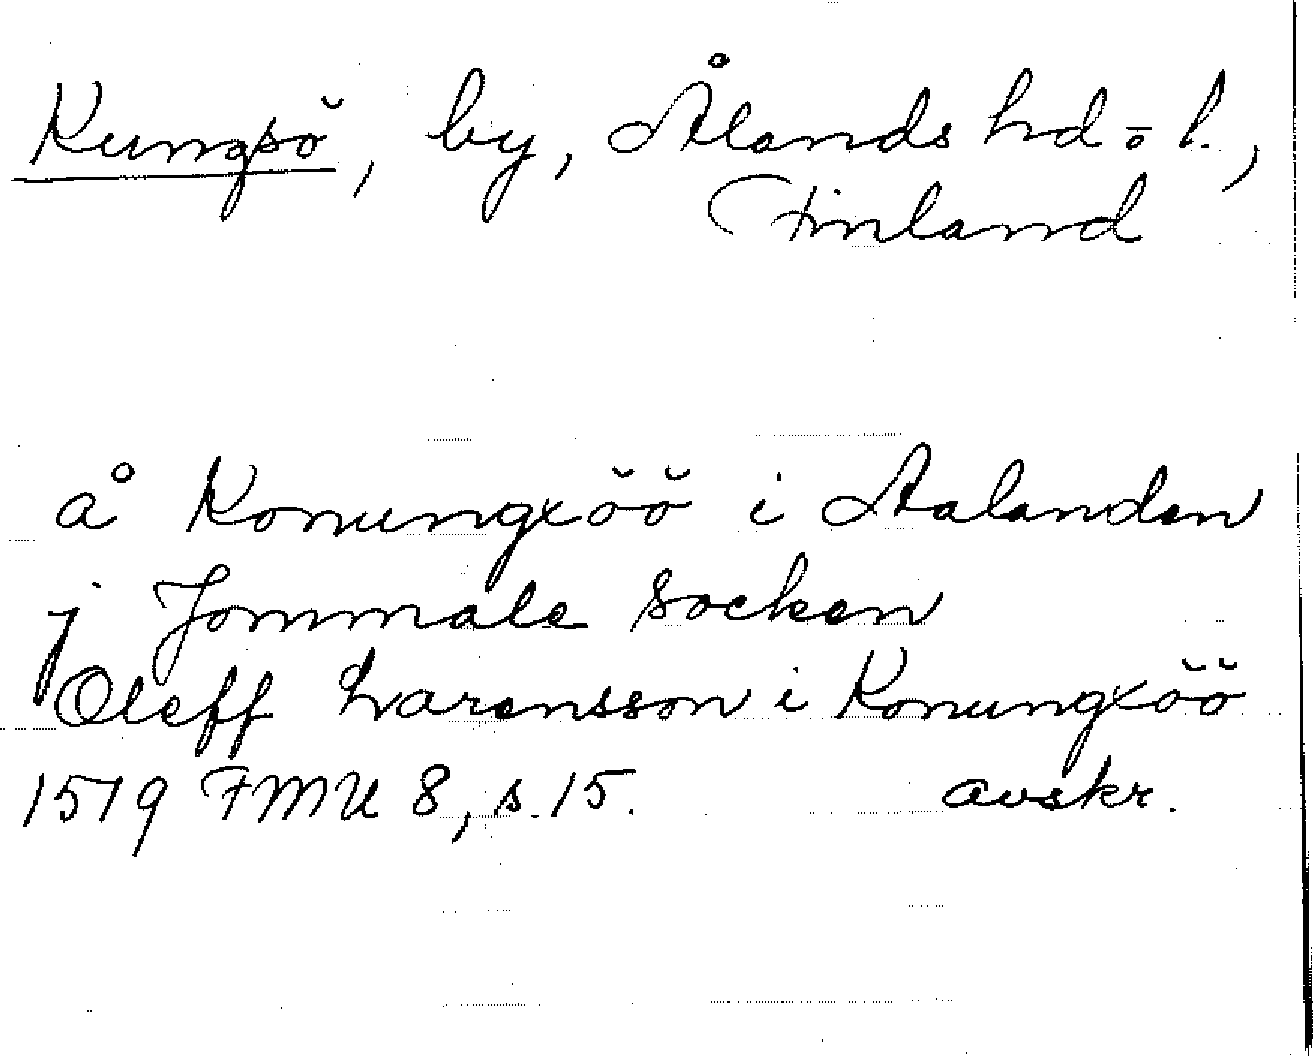 Kungsö, by, Ålands hd o l.,
Finland
å Konungxöö i Aalanden
j Jommale socken
Oleff Larensson i Konungxöö
1519 FMU 8, s. 15. avskr.